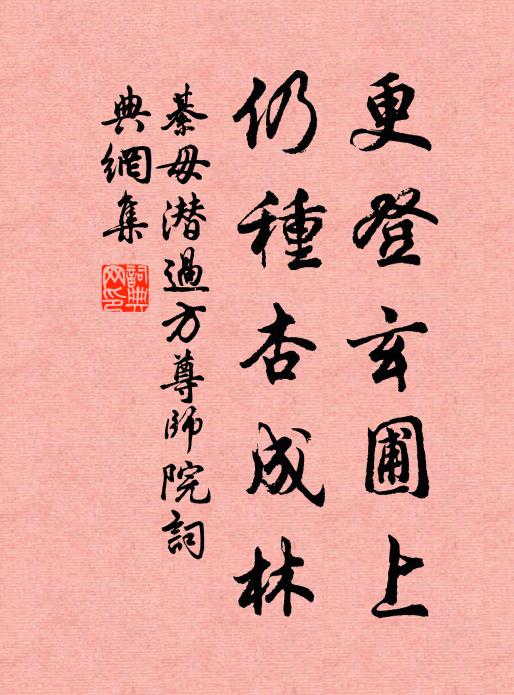 更登玄圃上
仍種杏成林
綦毋潜過方尊師院詞
典網集
詞典
网印